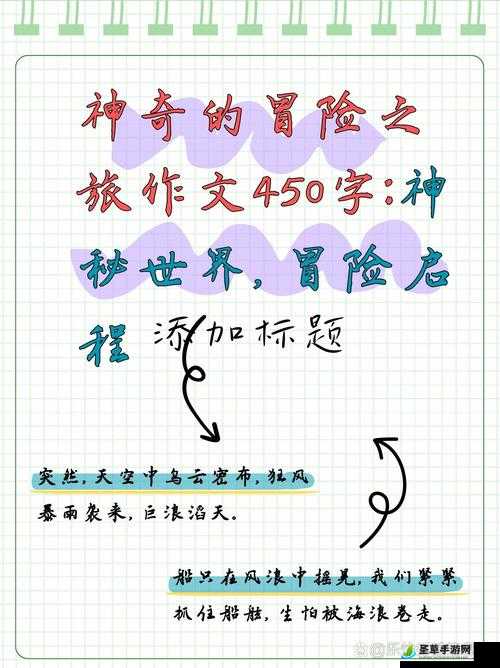 神奇的冒险之
旅作文450字:神
秘世界,冒险启
程 添加标题
突然,天空中乌云密布,狂风
暴雨袭来,巨浪滔天。
船只在风浪中摇晃,我们紧紧
抓住船舷,生怕被海浪卷走。
圣草手游网